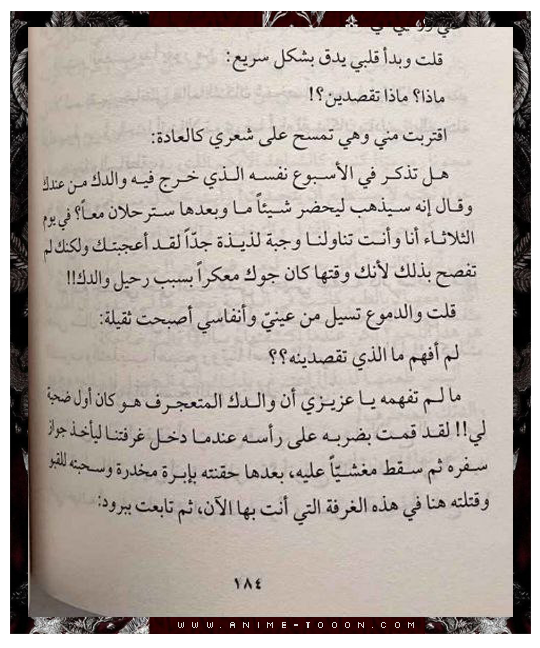 قلت وبدأ قلبي يدق بشكل سريع:
ماذا؟ ماذا تقصدين؟!
اقتربت مني وهي تمسح على شعري كالعادة:
هل تذكر في الأسبوع نفسه الذي خرج فيه والدك من عندك
وقال إنه سيذهب ليحضر شيئاً ما وبعدها سترحلان معاً؟ في يوم
الثلاثاء أنا وأنت تناولنا وجبة لذيذة جدّاً لقد أعجبتك ولكنك لم
تفصح بذلك لأنك وقتها كان جوك معكراً بسبب رحيل والدك!!
قلت والدموع تسيل من عينيّ وأنفاسي أصبحت ثقيلة:
لم أفهم ما الذي تقصدينه؟؟
ما لم تفهمه يا عزيزي أن والدك المتعجرف هو كان أول ضحية
لي!! لقد قمت بضربه على رأسه عندما دخل غرفتنا ليأخذ جواز
سفره ثم سقط مغشيّاً عليه، بعدها حقنته بإبرة مخدرة وسحبته للقبو
وقتلته هنا في هذه الغرفة التي أنت بها الآن، ثم تابعت ببرود:
١٨٤
WWW.ANIME-TOOON.COM